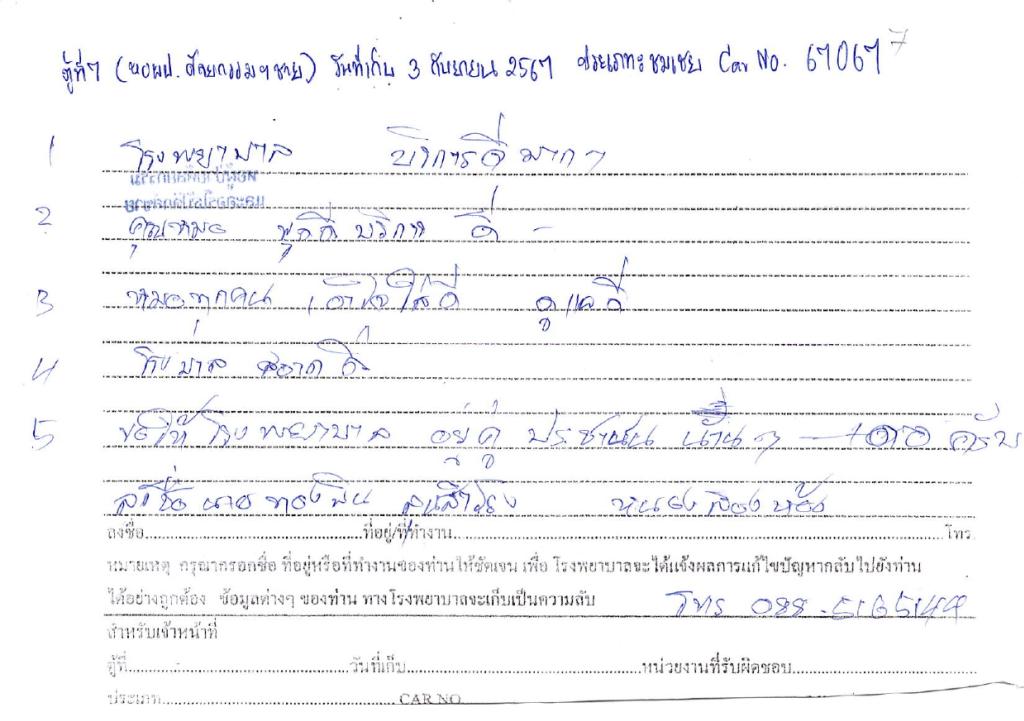 ตู้ที่ 7 (หอผป. ศัลยกรรมฯ ชาย) วันที่เก็บ 3 กันยายน 2567 ประเภท: ชมเชย Car No. 67067
7
1 โรงพยาบาล บริการดีมากๆ
หอผู้ป่วยศัลยกรรม
2 คุณหมอ พูดดี บริการ ดี -
3 หมอทุกคน เอาใจใส่ดี ดูแลดี
4 สอาดดี
5 ขอให้โรงพยาบาล อยู่คู่ ประชาชน ครับ
ลงชื่อ นาย
ลงชื่อ ที่อยู่/ที่ทำงาน โทร
หมายเหตุ กรุณากรอกชื่อ ที่อยู่หรือที่ทำงานของท่านให้ชัดเจน เพื่อ โรงพยาบาลจะได้แจ้งผลการแก้ไขปัญหากลับไปยังท่าน
ได้อย่างถูกต้อง ข้อมูลต่างๆ ของท่าน ทางโรงพยาบาลจะเก็บเป็นความลับ โทร 088-5165144
สำหรับเจ้าหน้าที่
ตู้ที่ วันที่เก็บ หน่วยงานที่รับผิดชอบ
ประเภท CAR NO